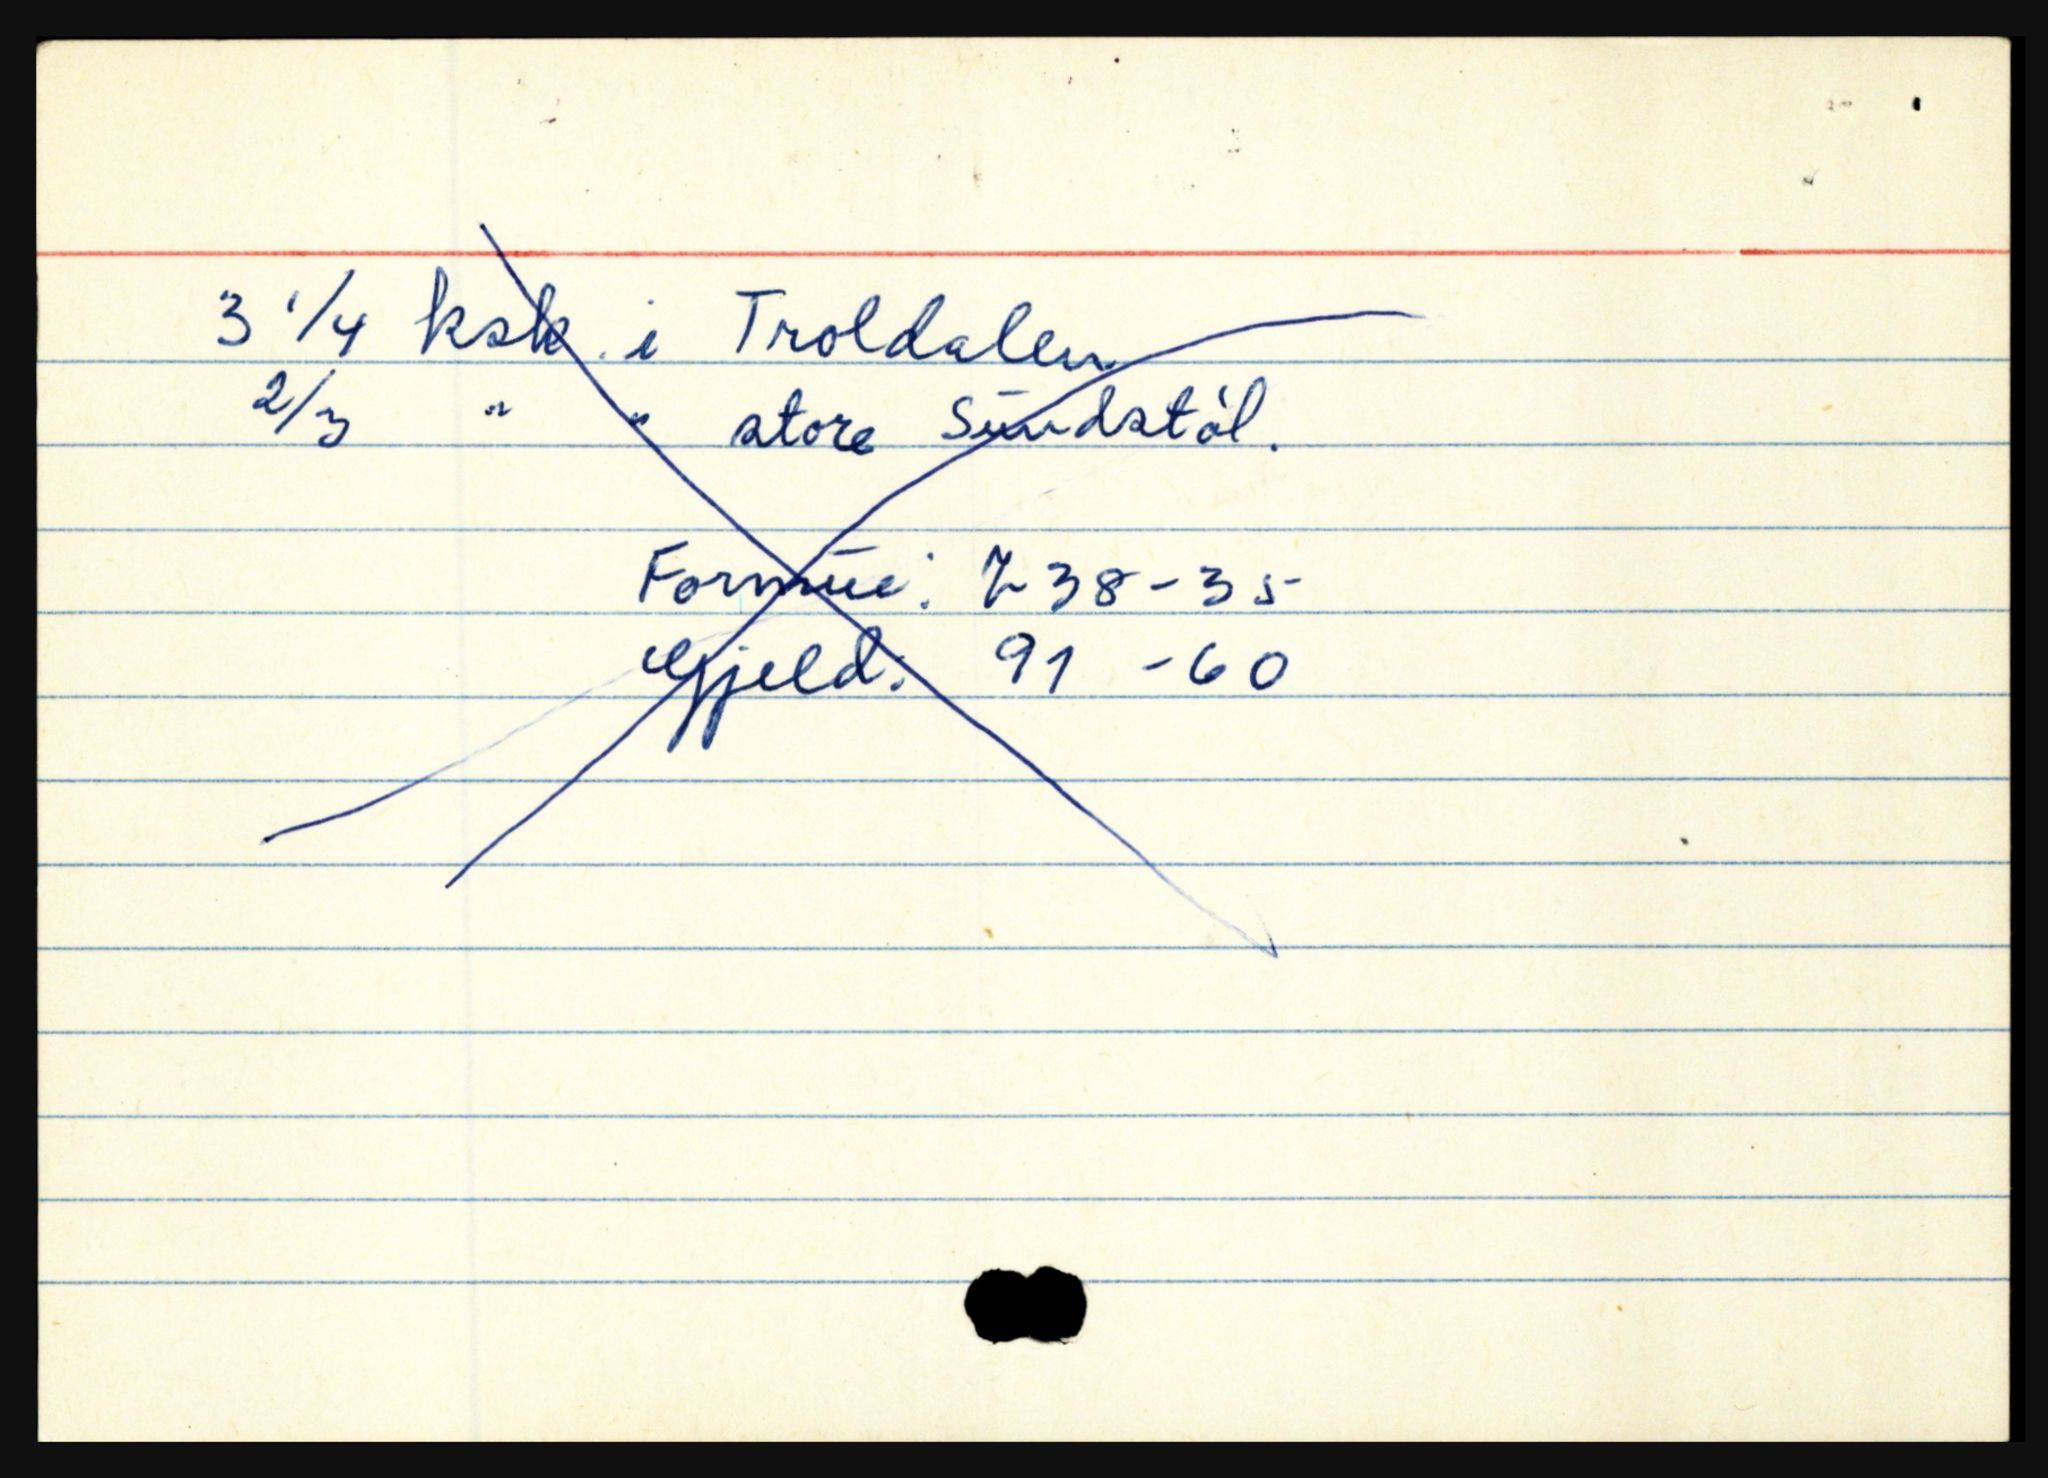 3 1/4 ksk. i Troldalen
2/3 " " store Sūndstøl.
Formūe: 738-35
Gjeld: 91 -60